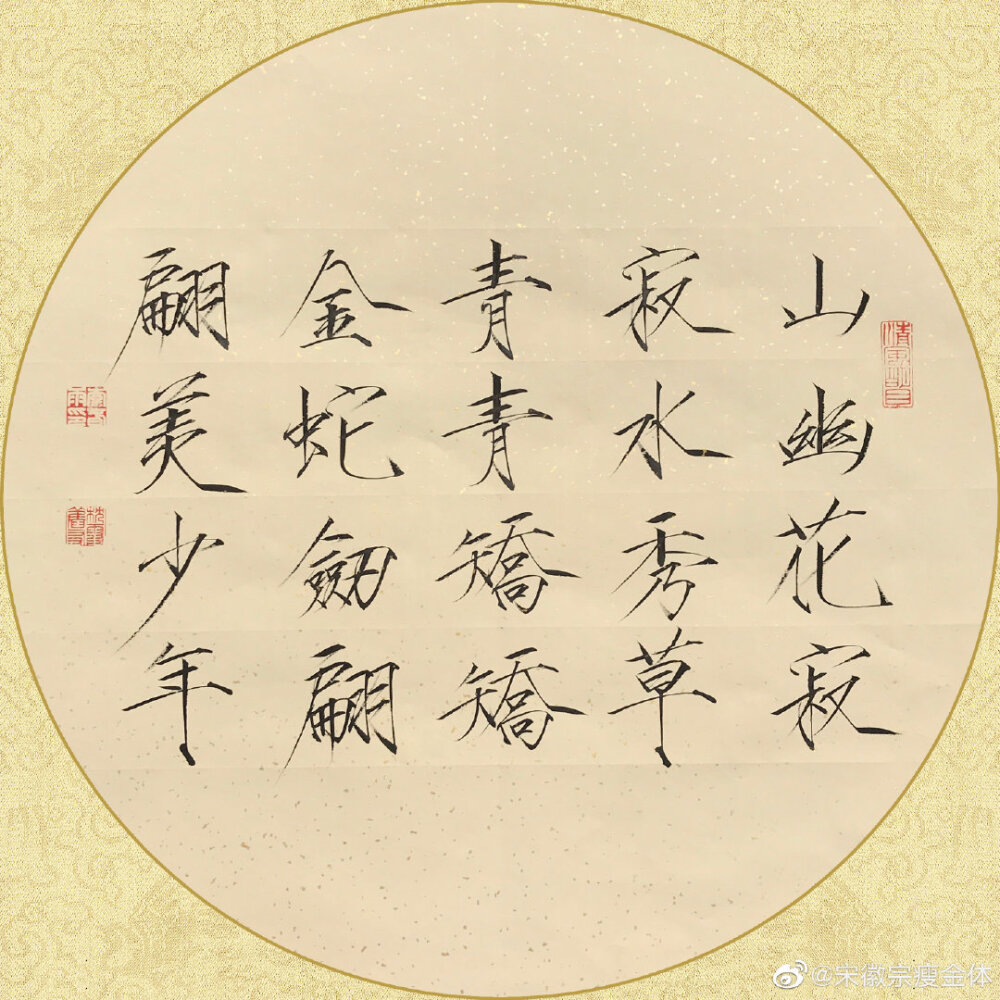 山幽花寂
寂水秀草
青青矯矯
金蛇劔翩
翩美少年
@宋徽宗瘦金体